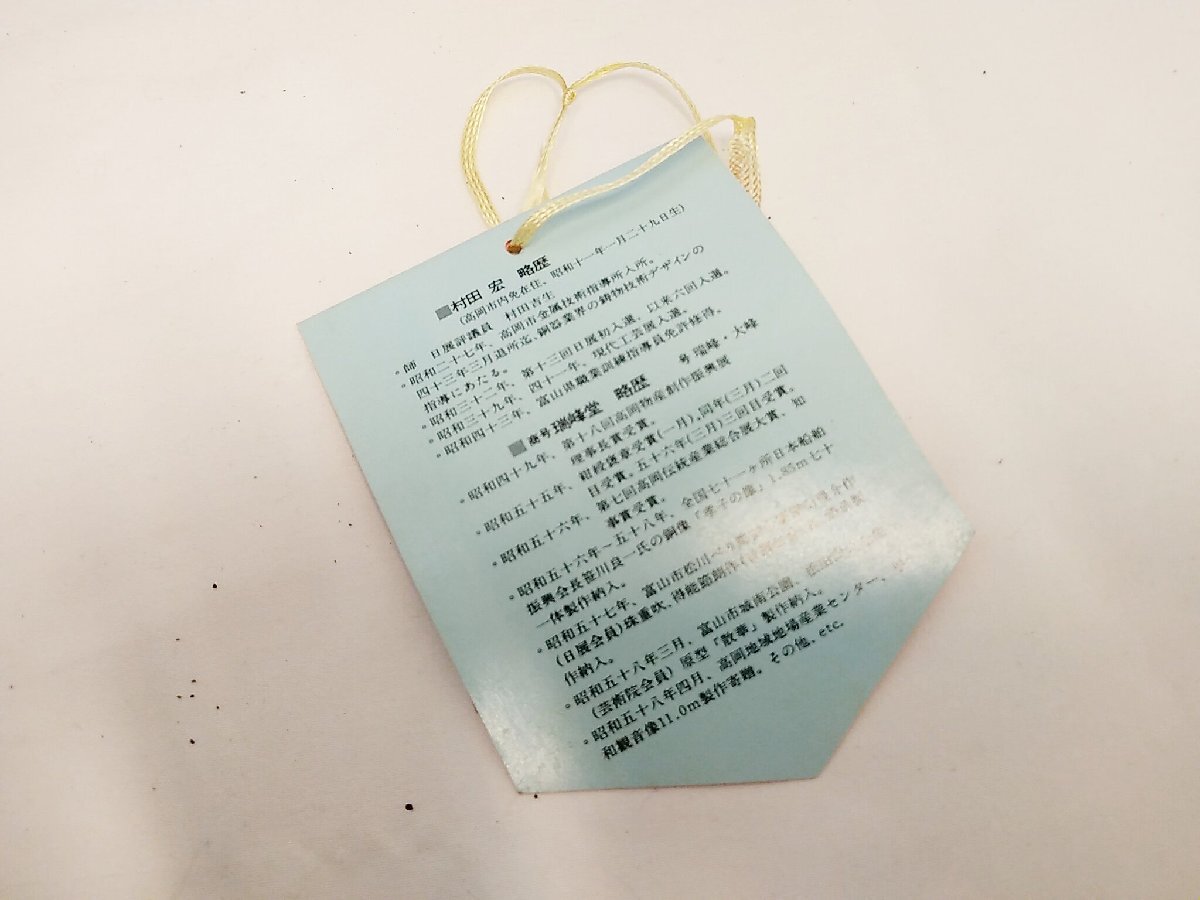 ■村田 宏 略歴
(高岡市内免在住、昭和十一年一月二十九日生)
・師 日展評議員 村田吉生
・昭和二十七年、高岡市金属技術指導所入所。
四十三年三月退所迄、銅器業界の鋳物技術デザインの
指導にあたる。
・昭和三十二年、第十三回日展初入選、以来六回入選。
・昭和三十九年、四十二年、現代工芸展入選。
・昭和四十三年、富山県職業訓練指導員免許修得。
■商号瑞峰堂 略歴 号 瑞峰・大峰
・昭和四十九年、第十八回高岡物産創作振興展
理事長賞受賞。
・昭和五十五年、紺綬褒章受賞(一月)、同年(三月)二回
目受賞。五十六年(三月)三回目受賞。
・昭和五十六年、第七回高岡伝統産業総合展大賞、知
事賞受賞。
・昭和五十六年~五十八年、全国七十一ヶ所日本船舶
振興会長笹川良一氏の銅像「孝子の像」1.85m七十
一体製作納入。
・昭和五十七年、富山市松川べり
(日展会員)珠重吹、得能節朗作
作納入。
・昭和五十八年三月、富山市城南公園、
(芸術院会員)原型「散華」製作納入。
・昭和五十八年四月、高岡地域地場産業センター、平
和観音像11.0m製作寄贈。その他、etc.